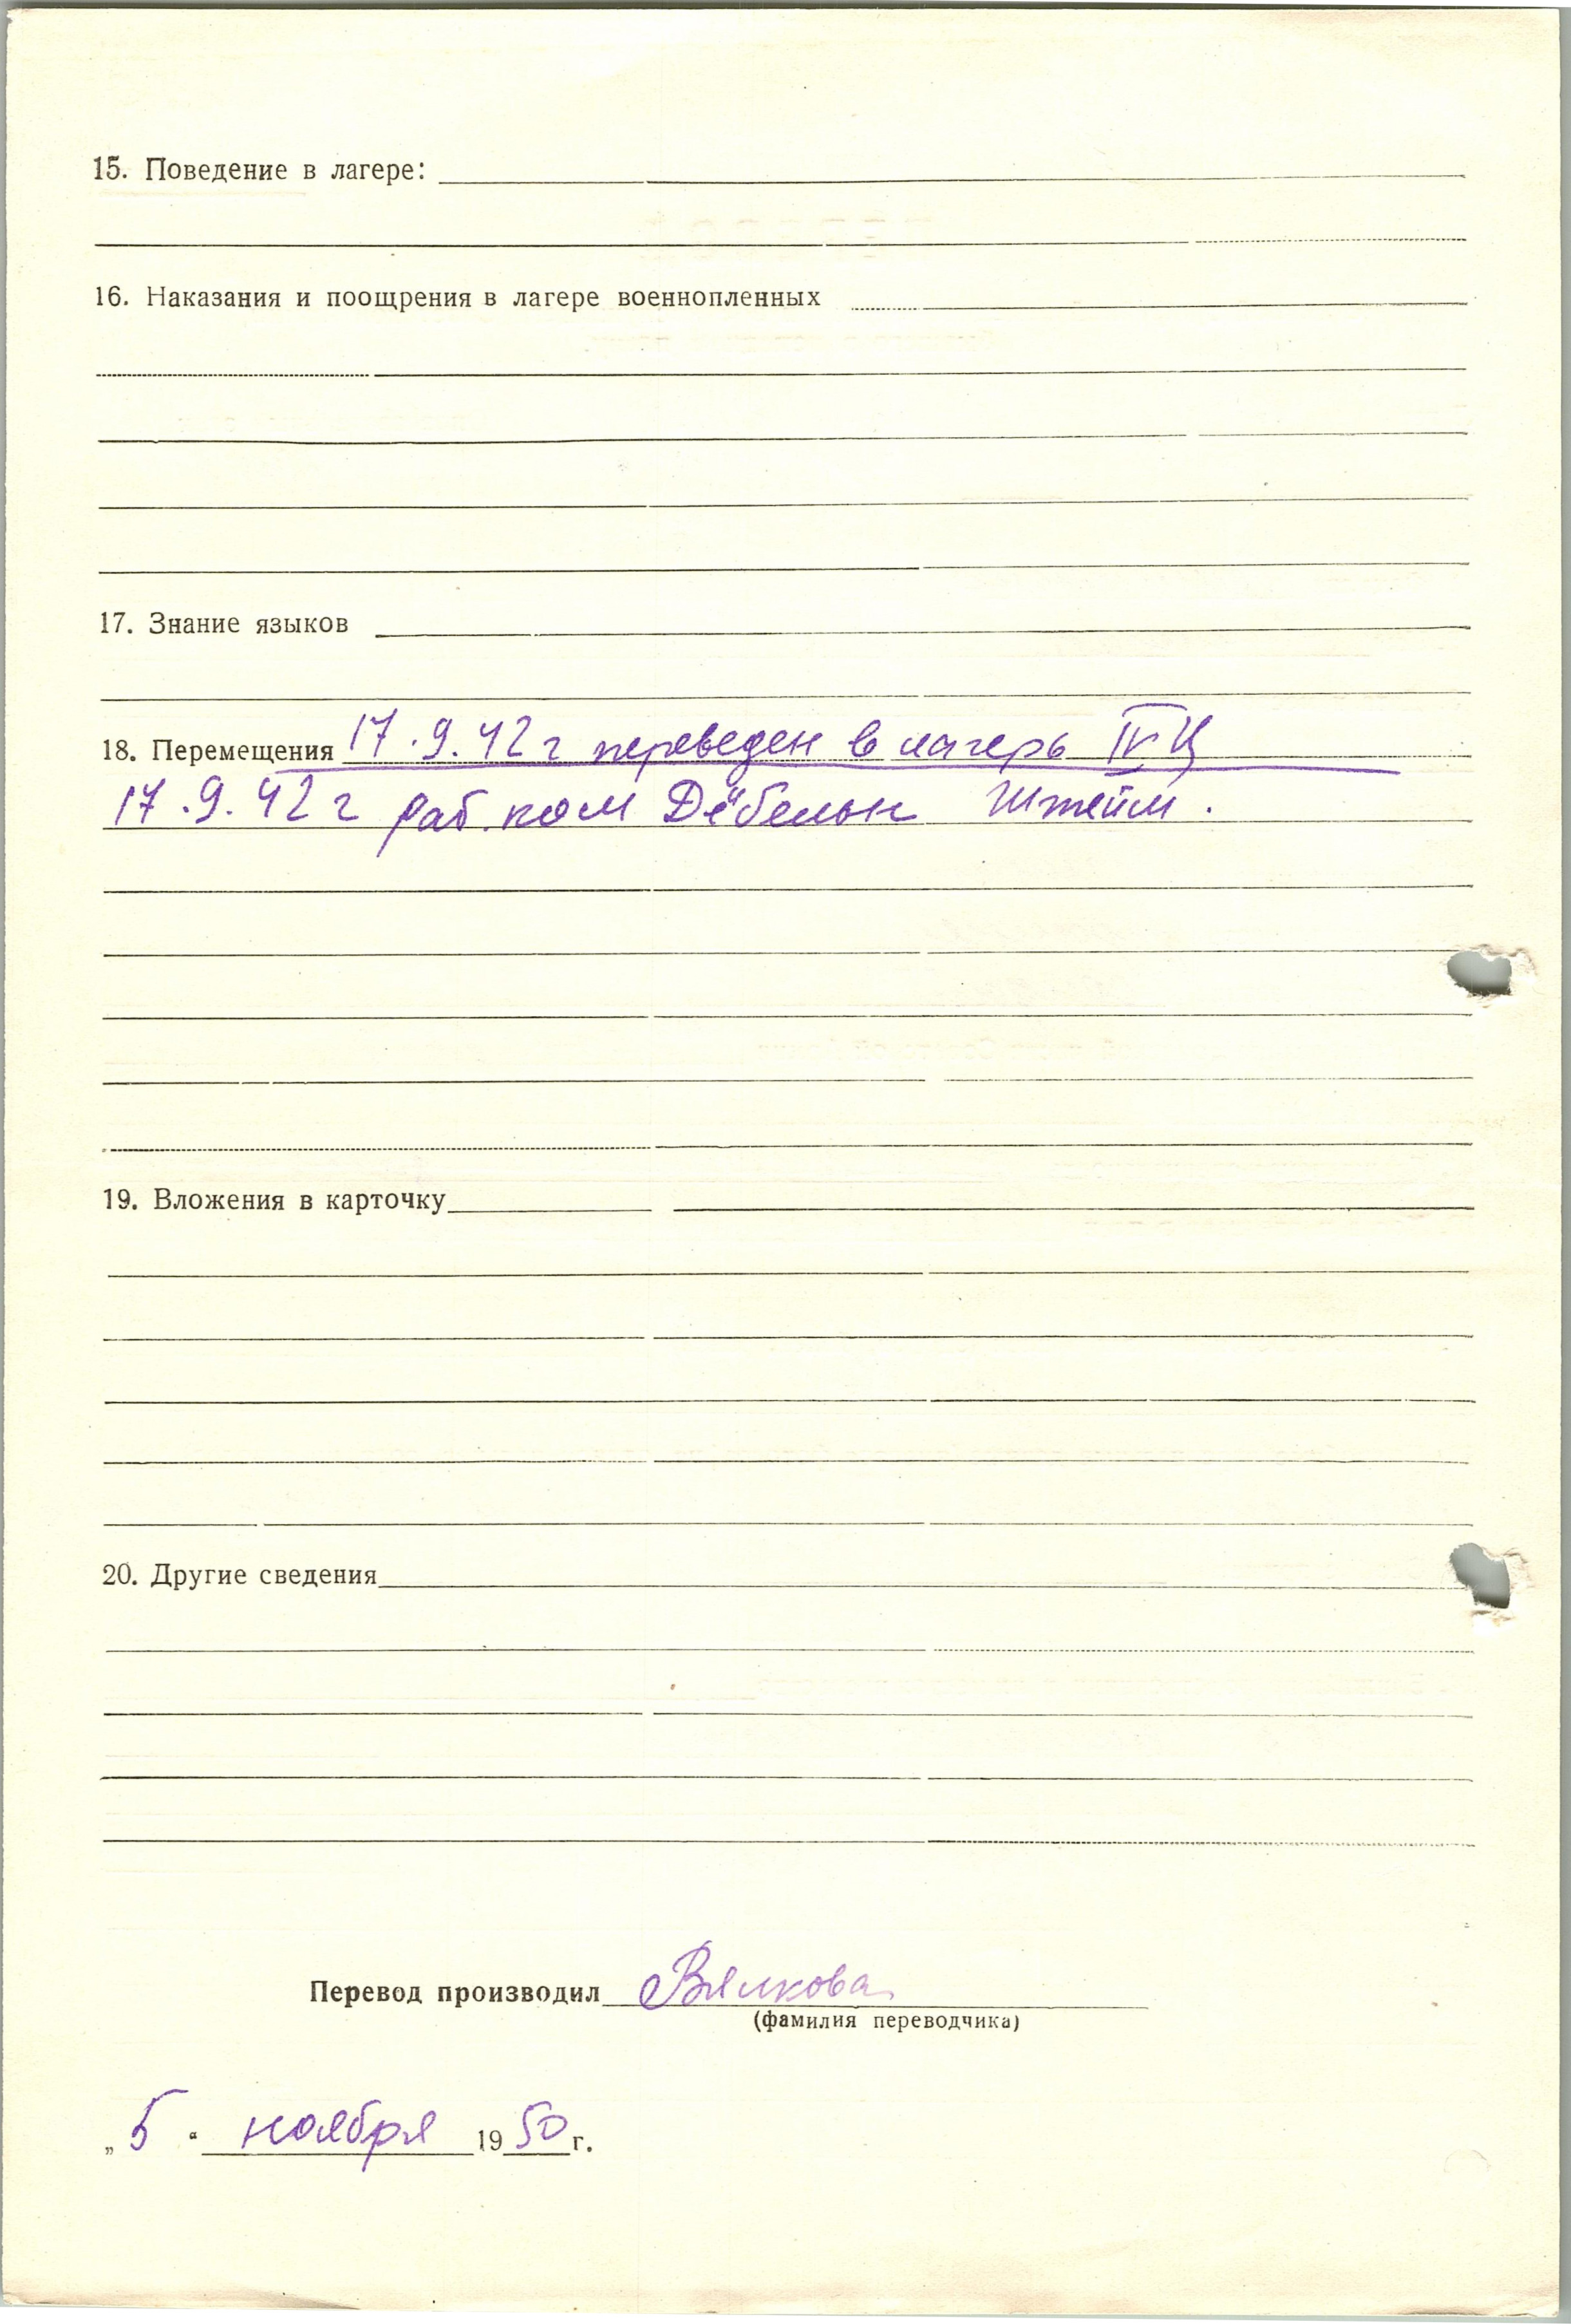 15. Поведение в лагере:
16. Наказания и поощрения в лагере военнопленных
17. Знание языков
18. Перемещения 17.9.42 г переведен в лагерь IV Ц
17.9.42 г раб.ком Дёбельн Штейм.
19. Вложения в карточку
20. Другие сведения
Перевод производил Вялкова
(фамилия переводчика)
„5“ ноября 1950 г.